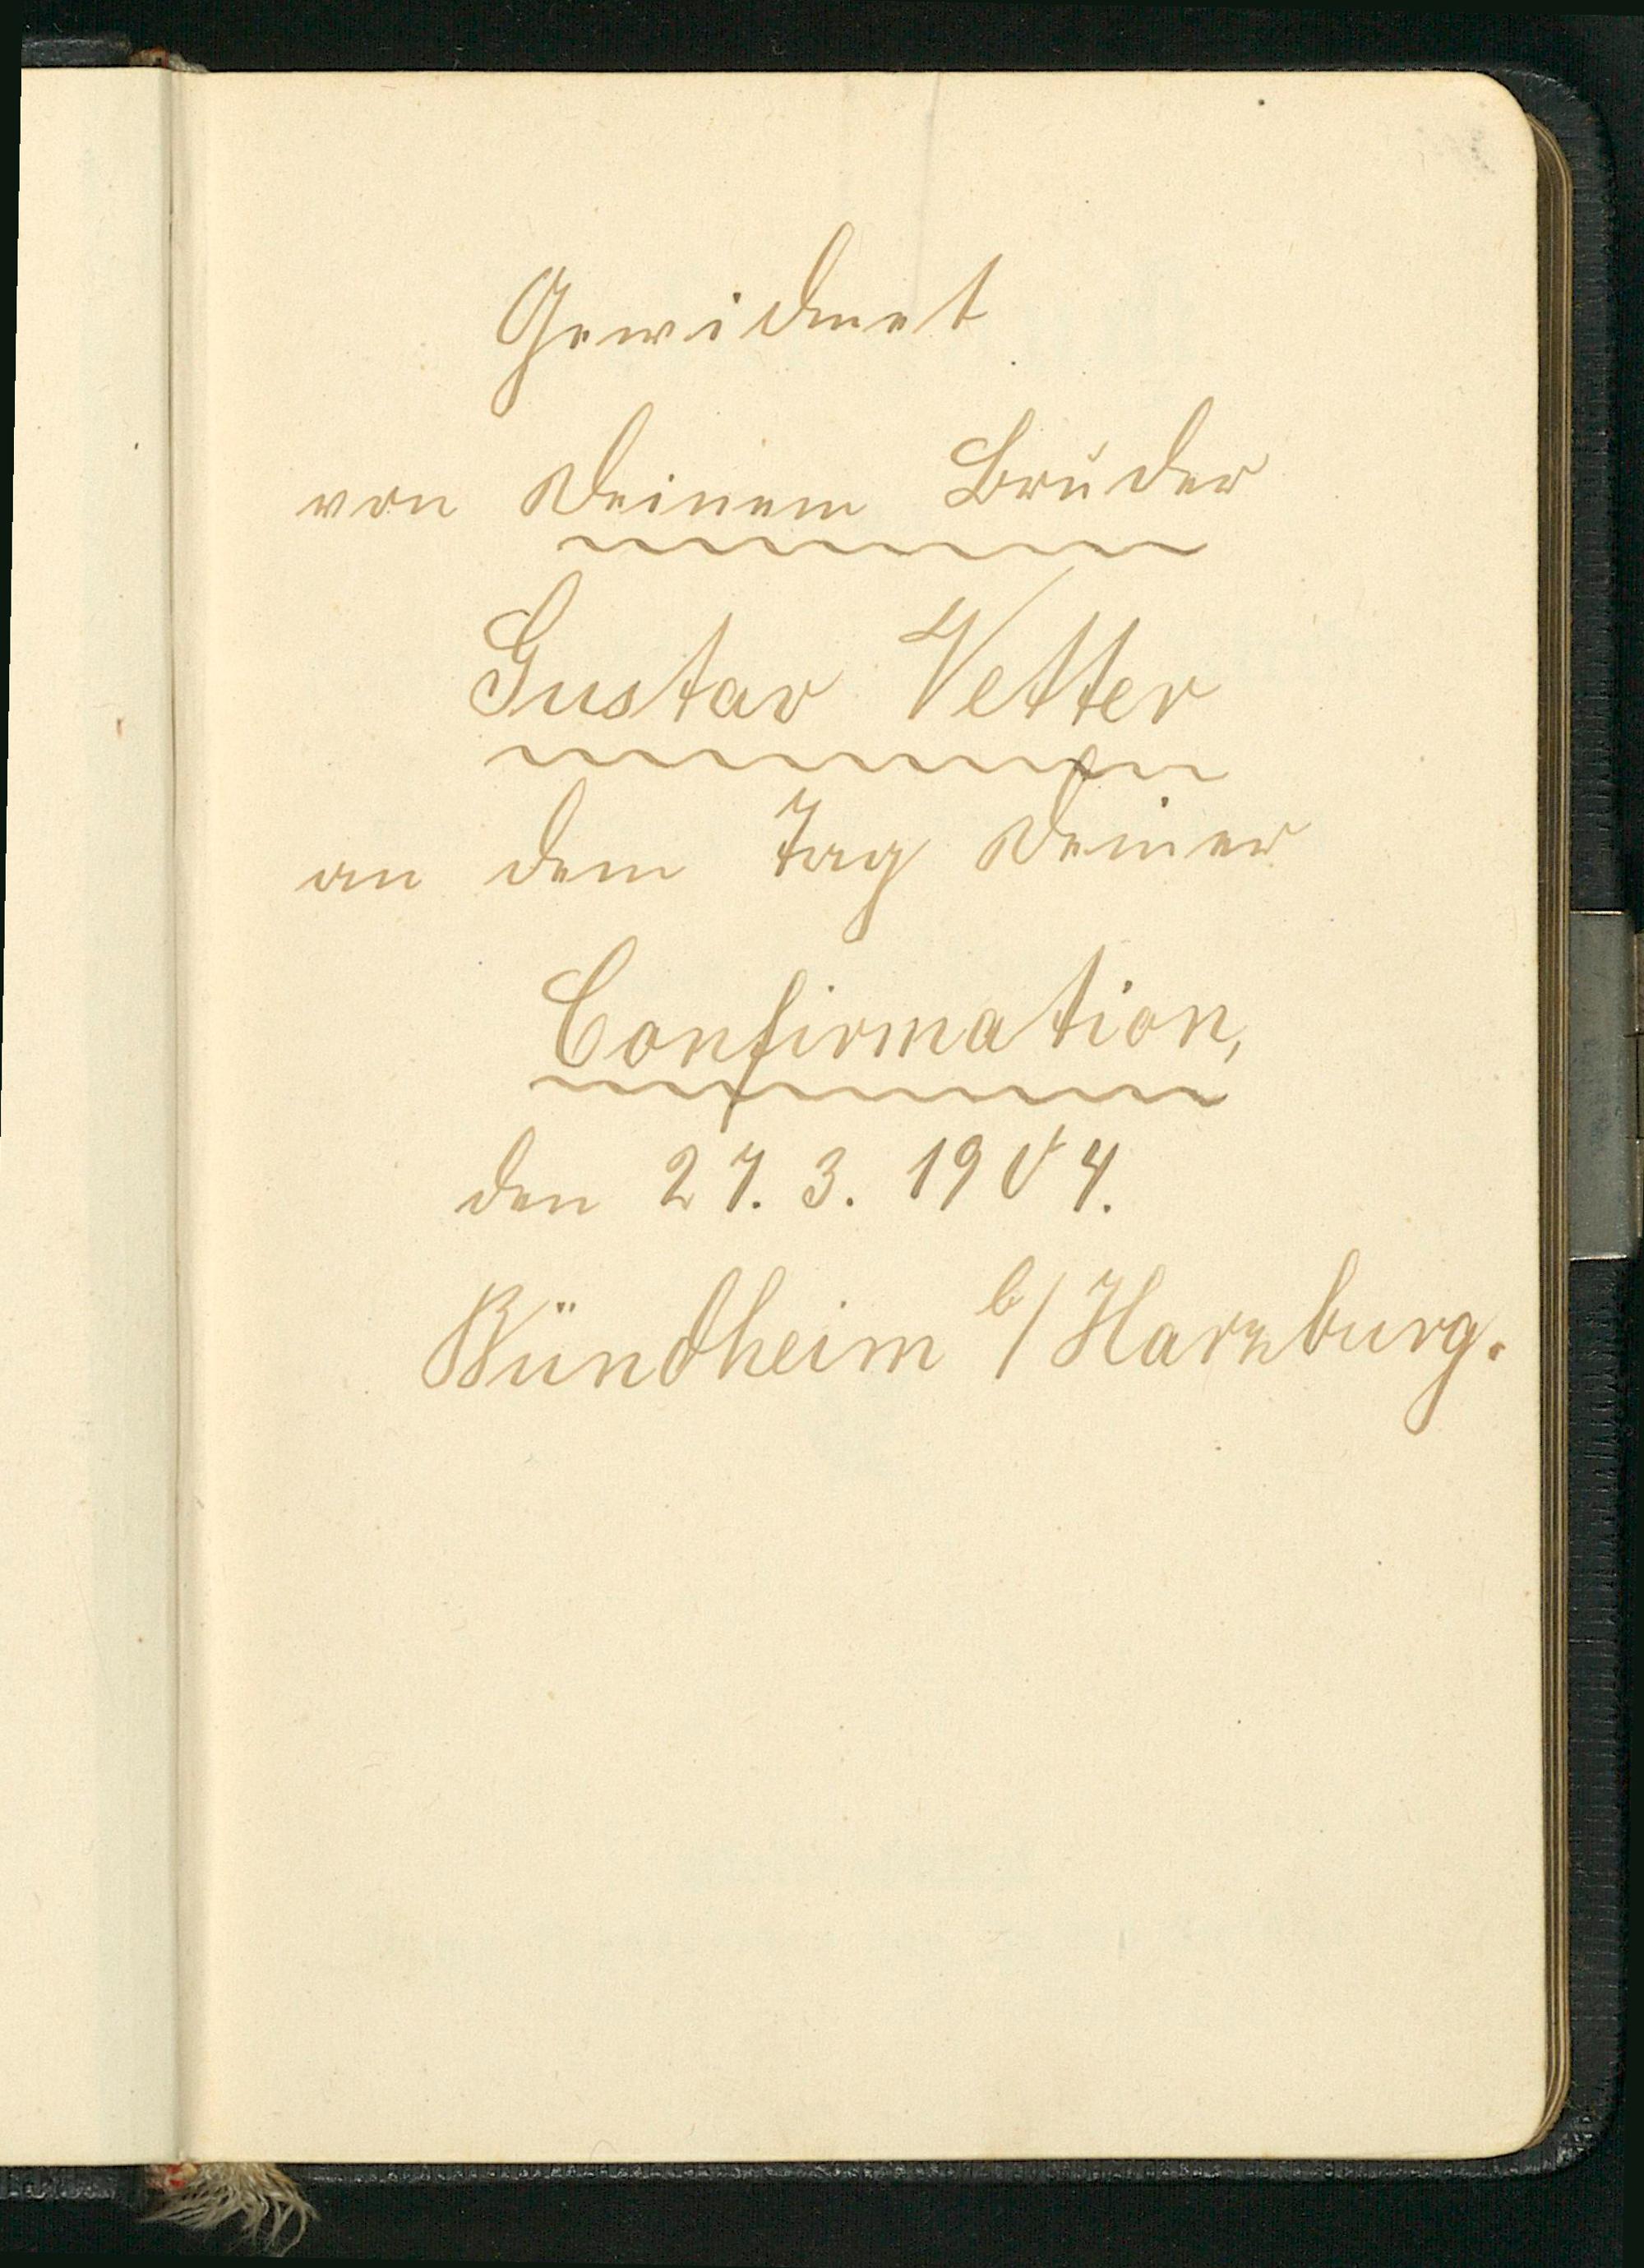 Gewidmet
von Deinem Bruder
Gustav Vetter
an dem Tag Deiner
Confirmation,
den 27. 3. 1904.
Bündheim b/Harzburg.